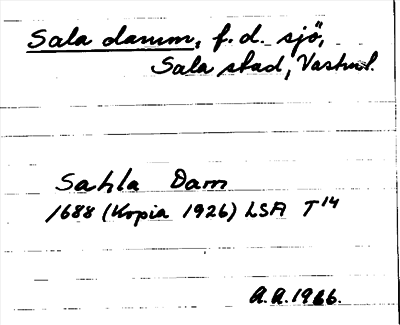 Sala damm, f.d. sjö,
Sala stad, Västml.
Sahla Dam
1688 (Kopia 1926) LSA T14
A.A. 1966.